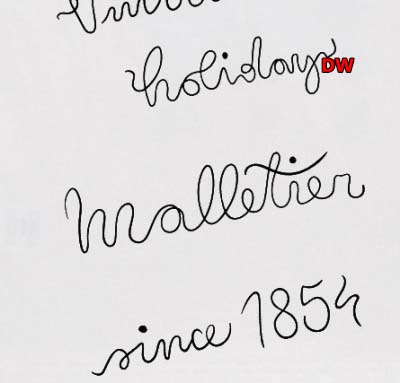 holidays
DW
Malletier
since 1854